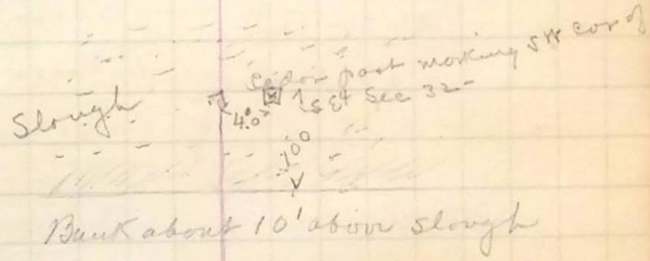 Cedar post marking SW cor of
SE4 Sec 32
Slough
4.0
100
Bank about 10' above slough